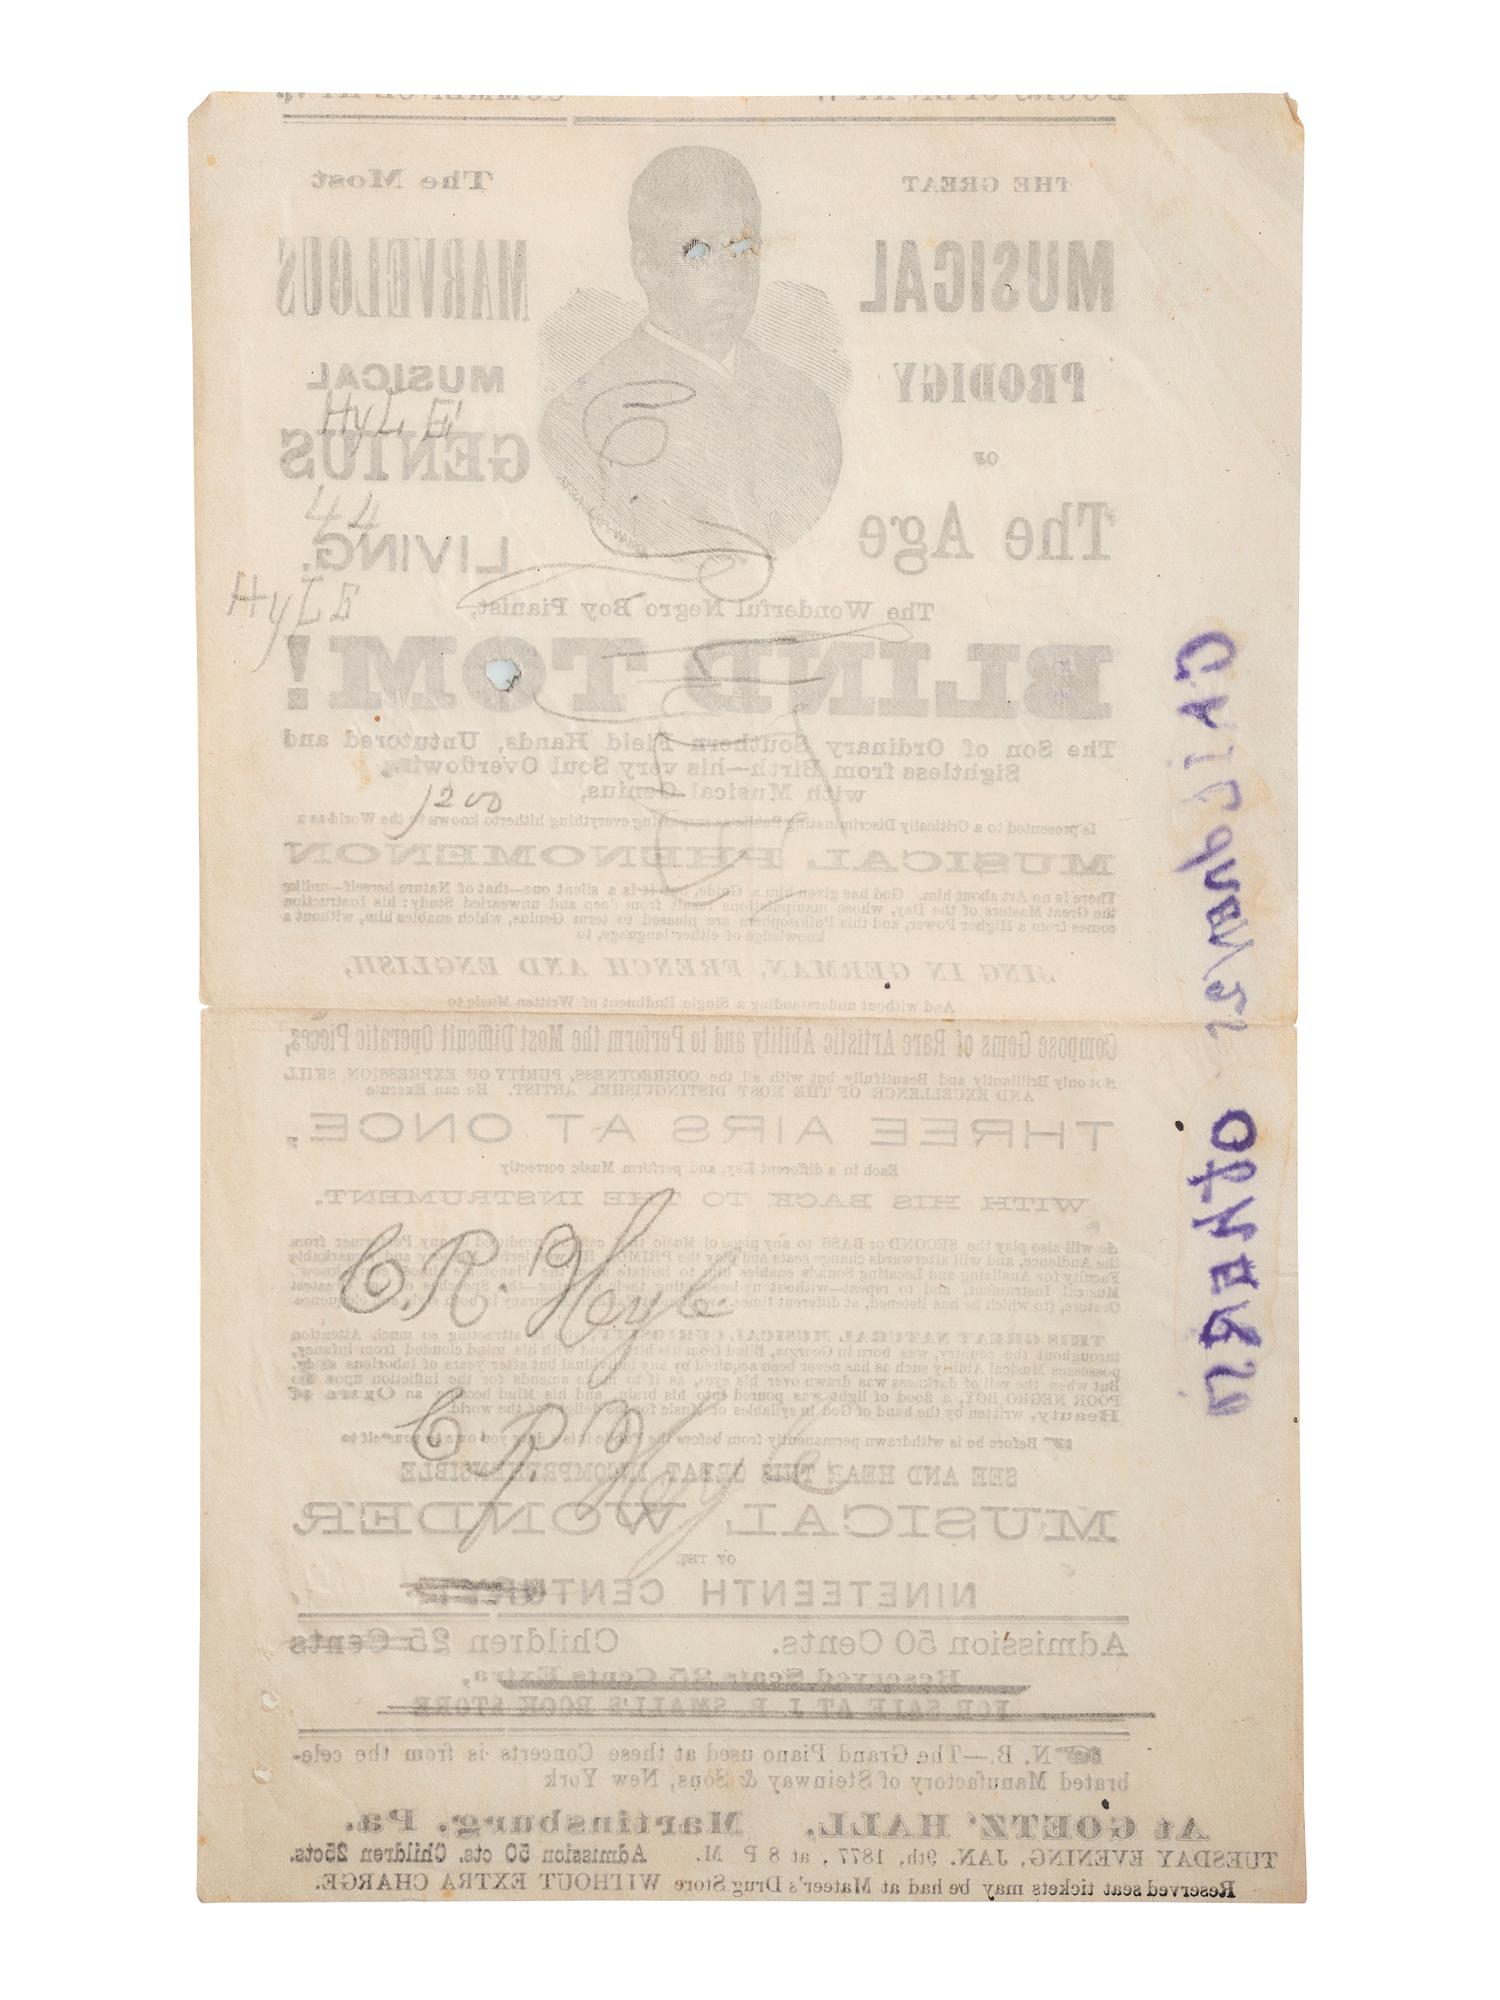 THE GREAT
MUSICAL
PRODIGY
OF
The Age
The Most
MARVELOUS
MUSICAL
GENIUS
LIVING.
HyLE
44
HyLE
The Wonderful Negro Boy Pianist,
BLIND TOM!
The Son of Ordinary Southern Field Hands, Untutored and
Sightless from Birth—his very Soul Overflowing
with Musical Genius,
1200
Is presented to a Critically Discriminating Public as surpassing everything hitherto known to the World as a
MUSICAL PHENOMENON
There is no Art about him. God has given him a Guide, but it is a silent one—that of Nature herself—unlike
the Great Masters of the Day, whose manipulations result from deep and unwearied Study: his Instruction
comes from a Higher Power, and this Philosophers are pleased to term Genius, which enables him, without a
knowledge of either language, to
SING IN GERMAN, FRENCH AND ENGLISH,
And without understanding a Single Rudiment of Written Music to
Compose Gems of Rare Artistic Ability and to Perform the Most Difficult Operatic Pieces,
Not only Brilliantly and Beautifully but with all the CORRECTNESS, PURITY OF EXPRESSION, SKILL
AND EXCELLENCE OF THE MOST DISTINGUISHED ARTIST. He can Execute
THREE AIRS AT ONCE,
Each in a different Key, and perform Music correctly
WITH HIS BACK TO THE INSTRUMENT.
He will also play the SECOND or BASS to any piece of Music that can be produced by any Performer from
the Audience, and will afterwards change seats and play the PRIMO. His wonderful Memory and remarkable
Faculty for Analizing and Locating Sounds enables him to imitate
Musical Instrument, and to repeat—without understanding their meaning—the Speeches of the Greatest
Orators, (to which he has listened, at different times,
C. R. Heyle
THIS GREAT NATURAL MUSICAL CURIOSITY, who is attracting so much Attention
throughout the country, was born in Georgia, Blind from his birth, and with his mind clouded from infancy,
possesses Musical Ability such as has never been acquired by any individual but after years of laborious study.
But when the veil of darkness was drawn over his eyes, as if to make amends for the infliction upon the
POOR NEGRO BOY, a flood of light was poured into his brain, and his Mind became an Opera of
Beauty, written by the hand of God in syllables of Music for the delight of the world.
C. R. Heyle
Before he is withdrawn permanently from before the Public it is a duty you owe to yourself to
SEE AND HEAR THIS GREAT INCOMPREHENSIBLE
MUSICAL WONDER
OF THE
NINETEENTH CENTURY
Admission 50 Cents. Children 25 Cents
Reserved Seats 25 Cents Extra,
FOR SALE AT J. B. SMALL'S BOOK STORE
N. B.—The Grand Piano used at these Concerts is from the cele-
brated Manufactory of Steinway & Sons, New York
At GOETZ' HALL, Martinsburg, Pa.
TUESDAY EVENING, JAN. 9th, 1877, at 8 P. M. Admission 50 cts. Children 25cts.
Reserved seat tickets may be had at Mateer's Drug Store WITHOUT EXTRA CHARGE.